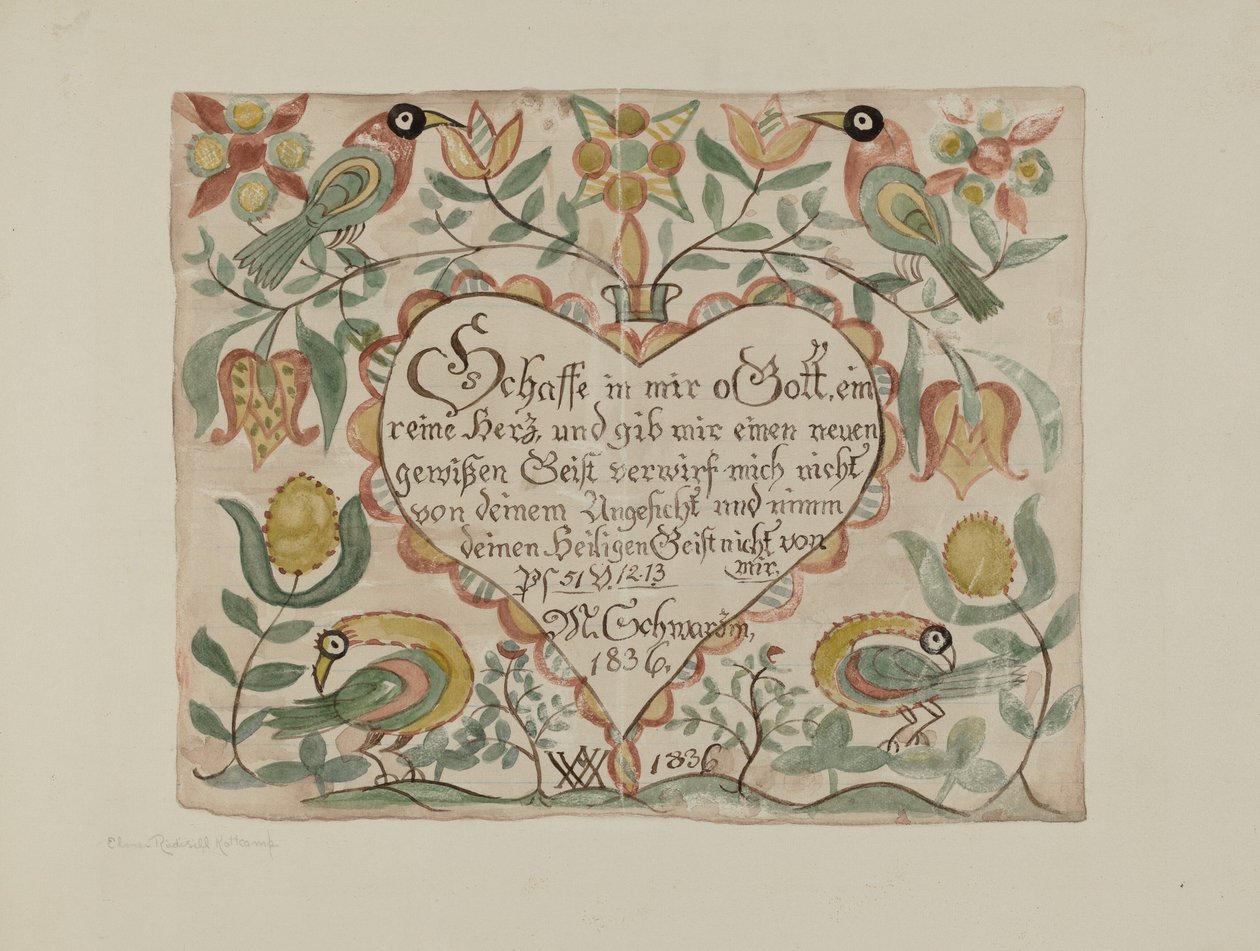 Schaffe in mir o Gott, ein
reine Herz, und gib mir einen neuen
gewißen Geist verwirf mich nicht
von deinem Angesicht und nimm
deinen Heiligen Geist nicht von
mir,
Ps 51 V. 12.13
M.
1836,
1836
Elmer Rudisill Kottcamp